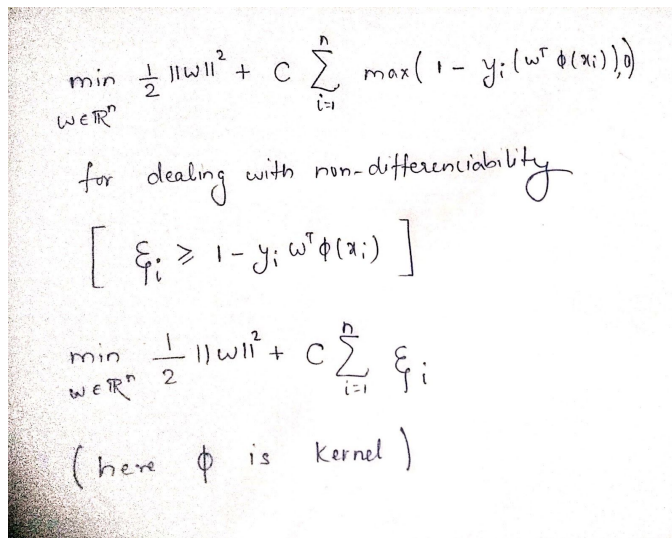 min 1/2 ||w||² + C Σ_{i=1}^{n} max(1 - y_i(wᵀφ(x_i)),0)
w∈ℝⁿ
for dealing with non-differenciability
[ ξ_i ≥ 1 - y_i wᵀφ(x_i) ]
min 1/2 ||w||² + C Σ_{i=1}^{n} ξ_i
w∈ℝⁿ
(here φ is kernel)